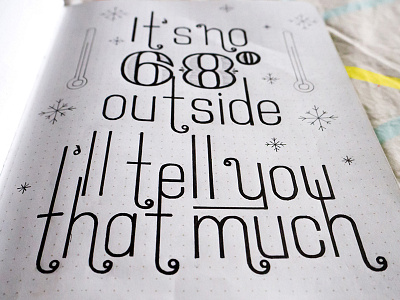 It's no
68°
outside
I'll tell you
that much